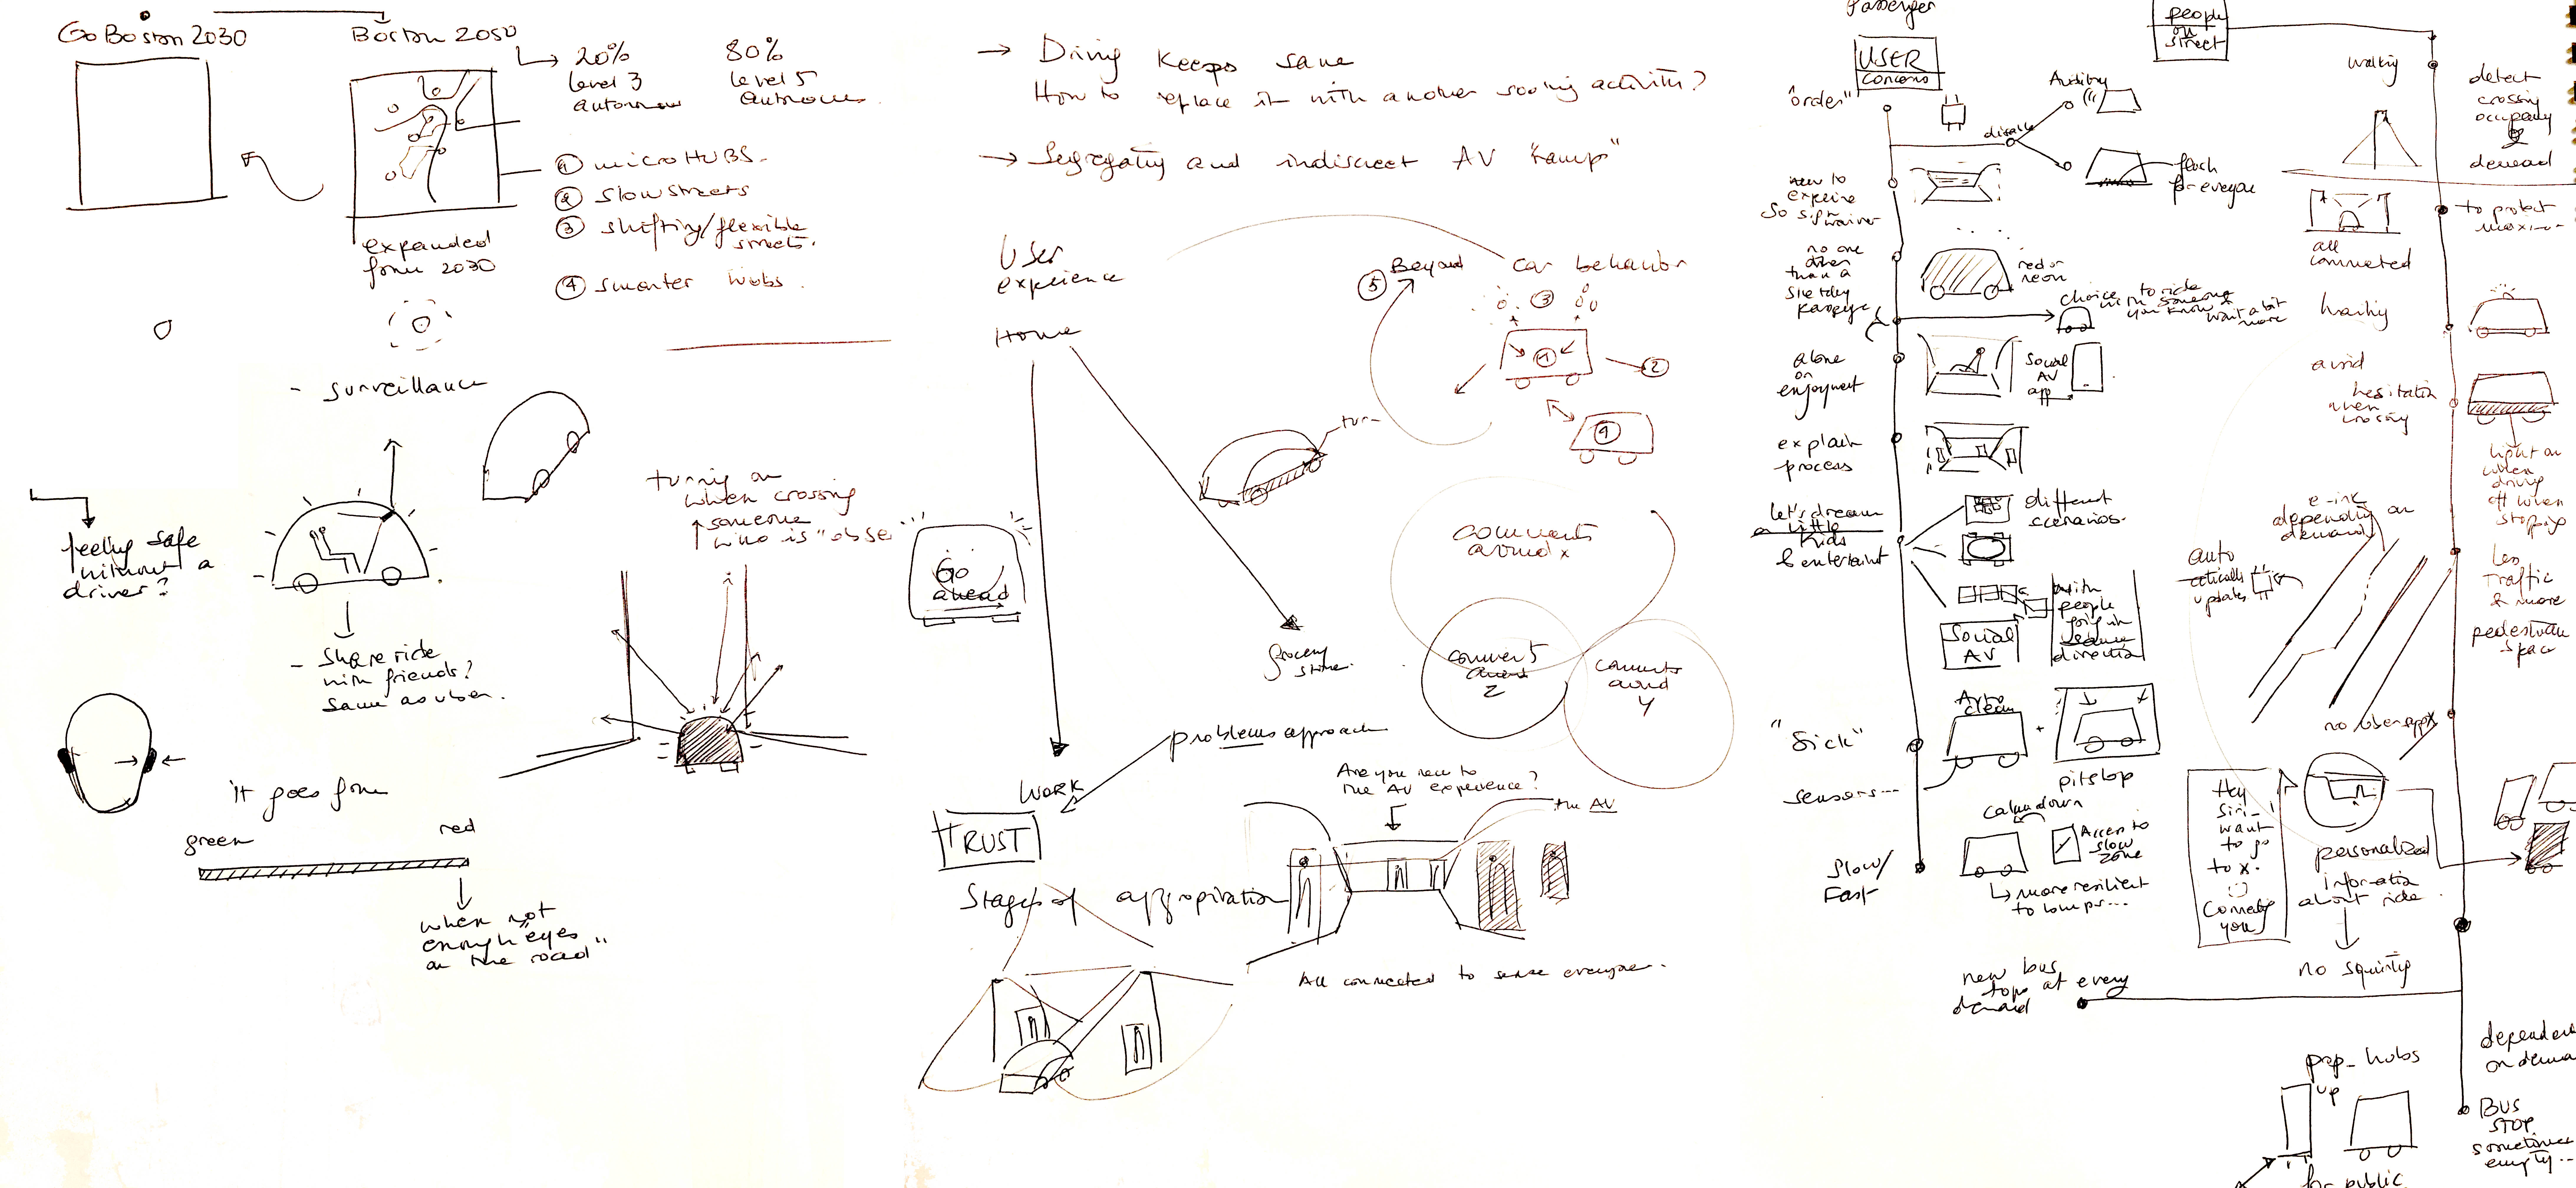 Go Boston 2030
Boston 2050
20%
level 3
80%
level 5
① micro HUBS.
② slow streets
③ shifting/flexible
streets.
④ smarter hubs.
expanded
from 2030
- surveillance
feeling safe
without a
driver?
- Share ride
with friends?
same as uber.
turning on
when crossing
someone
who is "obse
it goes from
green
red
when not
enough "eyes
on the road"
→ Driving keeps sane
How to replace it with another activity?
→ Segregating and indiscreet AV "ramp"
User
experience
Home
⑤ Beyond
car behavior
③
①
②
④
turn
Go
ahead
grocery
store.
WORK
problems approach
TRUST
Stages of appropriation
Are you new to
the AV experience?
the AV
All connected to sense everyone..
Passenger
USER
concerns
"order"
Auditory
disable
for everyone
new to
no one
other
than a
red or
neon
choice to ride
with someone
you know &
want a bit
more
alone
or
enjoyment
Social
AV
app
explain
process
different
scenarios.
let's dream
a little
Kids
& entertaint
with
people
going in
same
direction
Social
AV
"Sick"
sensors...
Auto
clean
pitstop
calm down
Slow/
Fast
Access to
slow
zone
↳ more resilient
to bumps...
people
on
street
walking
detect
crossing
occupancy
&
demand
to protect
all
connected
hailing
avoid
hesitation
when
crossing
light on
when
driving
off when
stopping
e-ink
depending on
demand
auto
updates
Less
Traffic
& more
pedestrian
space
no uber app
Hey
Siri-
want
to go
to x.
you
personalized
information
about ride
no squinting
new bus
stops at every
demand
pop-hubs
up
for public
on dema
BUS
STOP
sometimes
empty...